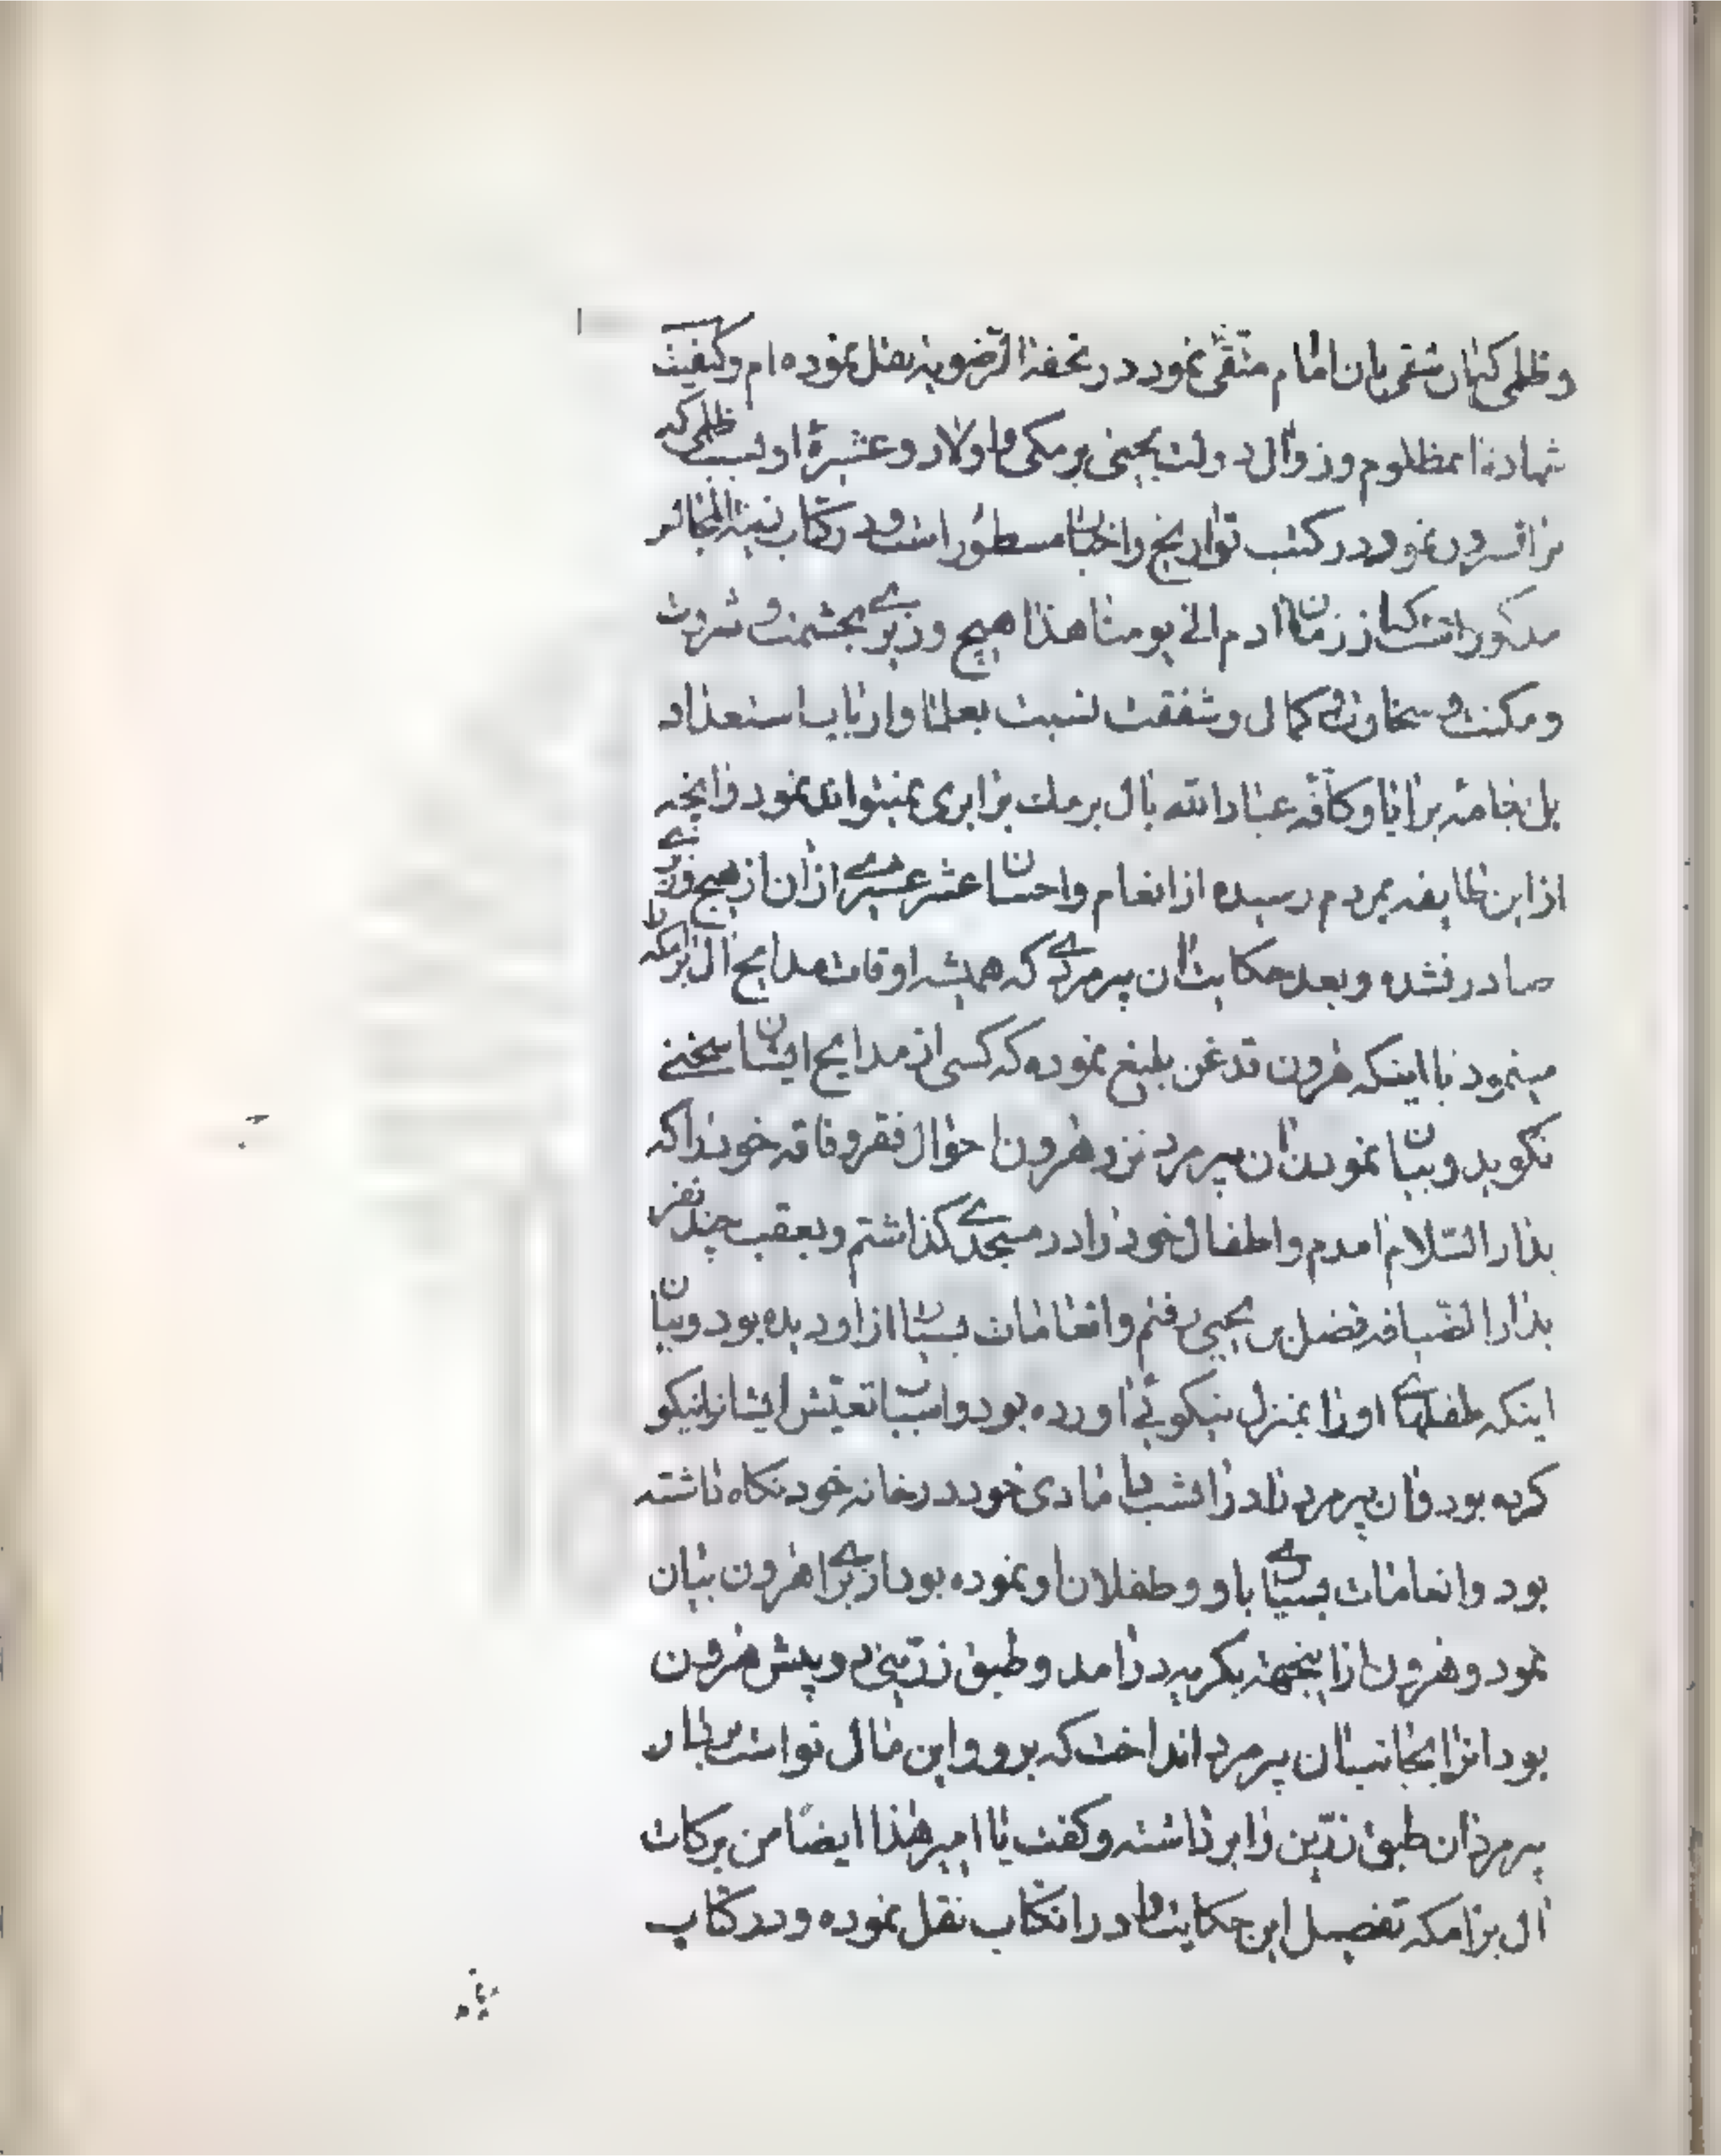 و ظلمی که آن شقی بان امام متقی نمود در تحفة الرضویه نقل نموده ام و کیفیت
شهادة آنمظلوم و زوال دولت یحیی برمکی و اولاد و عشیرۀ او بسبب ظلمی که
نموده در کتب تواریخ و اخبار مسطور است و در کتاب زینة المجالس
مذکور است که از زمان ادم الی یومنا هذا هیچ وزیری بحشمت و ثروت
و مکنت و سخاوت و کمال و شفقت نسبت بعلما و ارباب استعداد
بل بعامۀ برایا و کافّه عباد الله بال برمک برابری نمیتواند نمود و انچه
از این طایفه بمردم رسیده از انعام و احسان عشر عشیری از ان از هیچ وزیری
صادر نشده و بعد حکایت ان پیرمردی که همیشه اوقات مدایح ال برامکه را
مینمود با اینکه هرون قدغن بلیغ نموده که کسی از مدایح ایشان سخنی
نگوید و بیان نمودن ان پیرمرد نزد هرون احوال فقر و فاقه خود را که
بدار السّلام امدم و اطفال خود را در مسجدی گذاشتم و بعقب چند نفر
بدار الضّیافه فضل بن یحیی رفتم و انعامات بسیار از او دیده بود و بیان
اینکه طفلهای او را بمنزل نیکوئی اورده بود و اسباب تعیّش ایشانرا نیکو
کرده بود و ان پیرمرد را در انشب با مادی خود در خانه خود نگاه داشته
بود و انعامات بسیاری باو و طفلان او نموده بود از برای هرون بیان
نمود و هرون از اینجهة بگریه درامد و طبق زرّینی در پیش هرون
بود انرا بجانب ان پیرمرد انداخت که برو و این مال تو است بردار
پیرمرد ان طبق زرّین را برداشته و گفت یا امیر هذا ایضًا من برکات
ال برامکه تفصیل این حکایت را در انکتاب نقل نموده و در کتاب